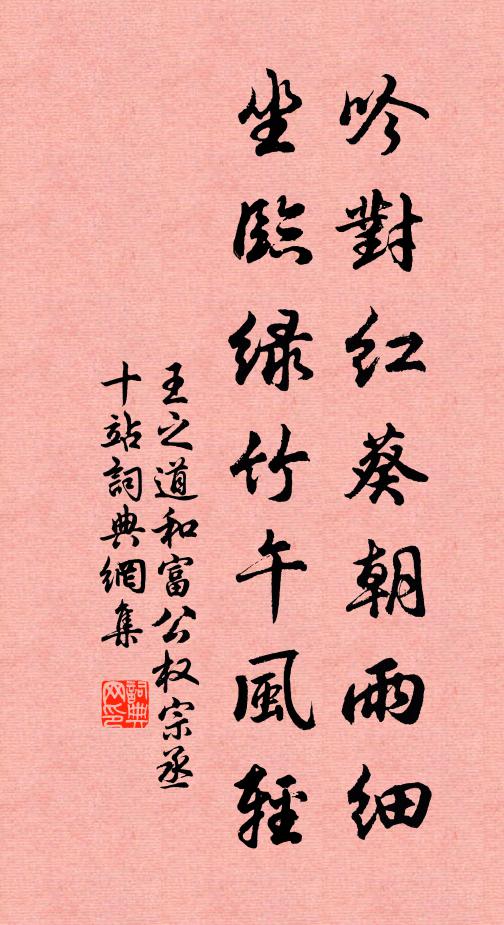 吟對紅葵朝雨細
坐臨緑竹午風輕
王之道和富公权宗丞
十站詞典網集
詞典网印